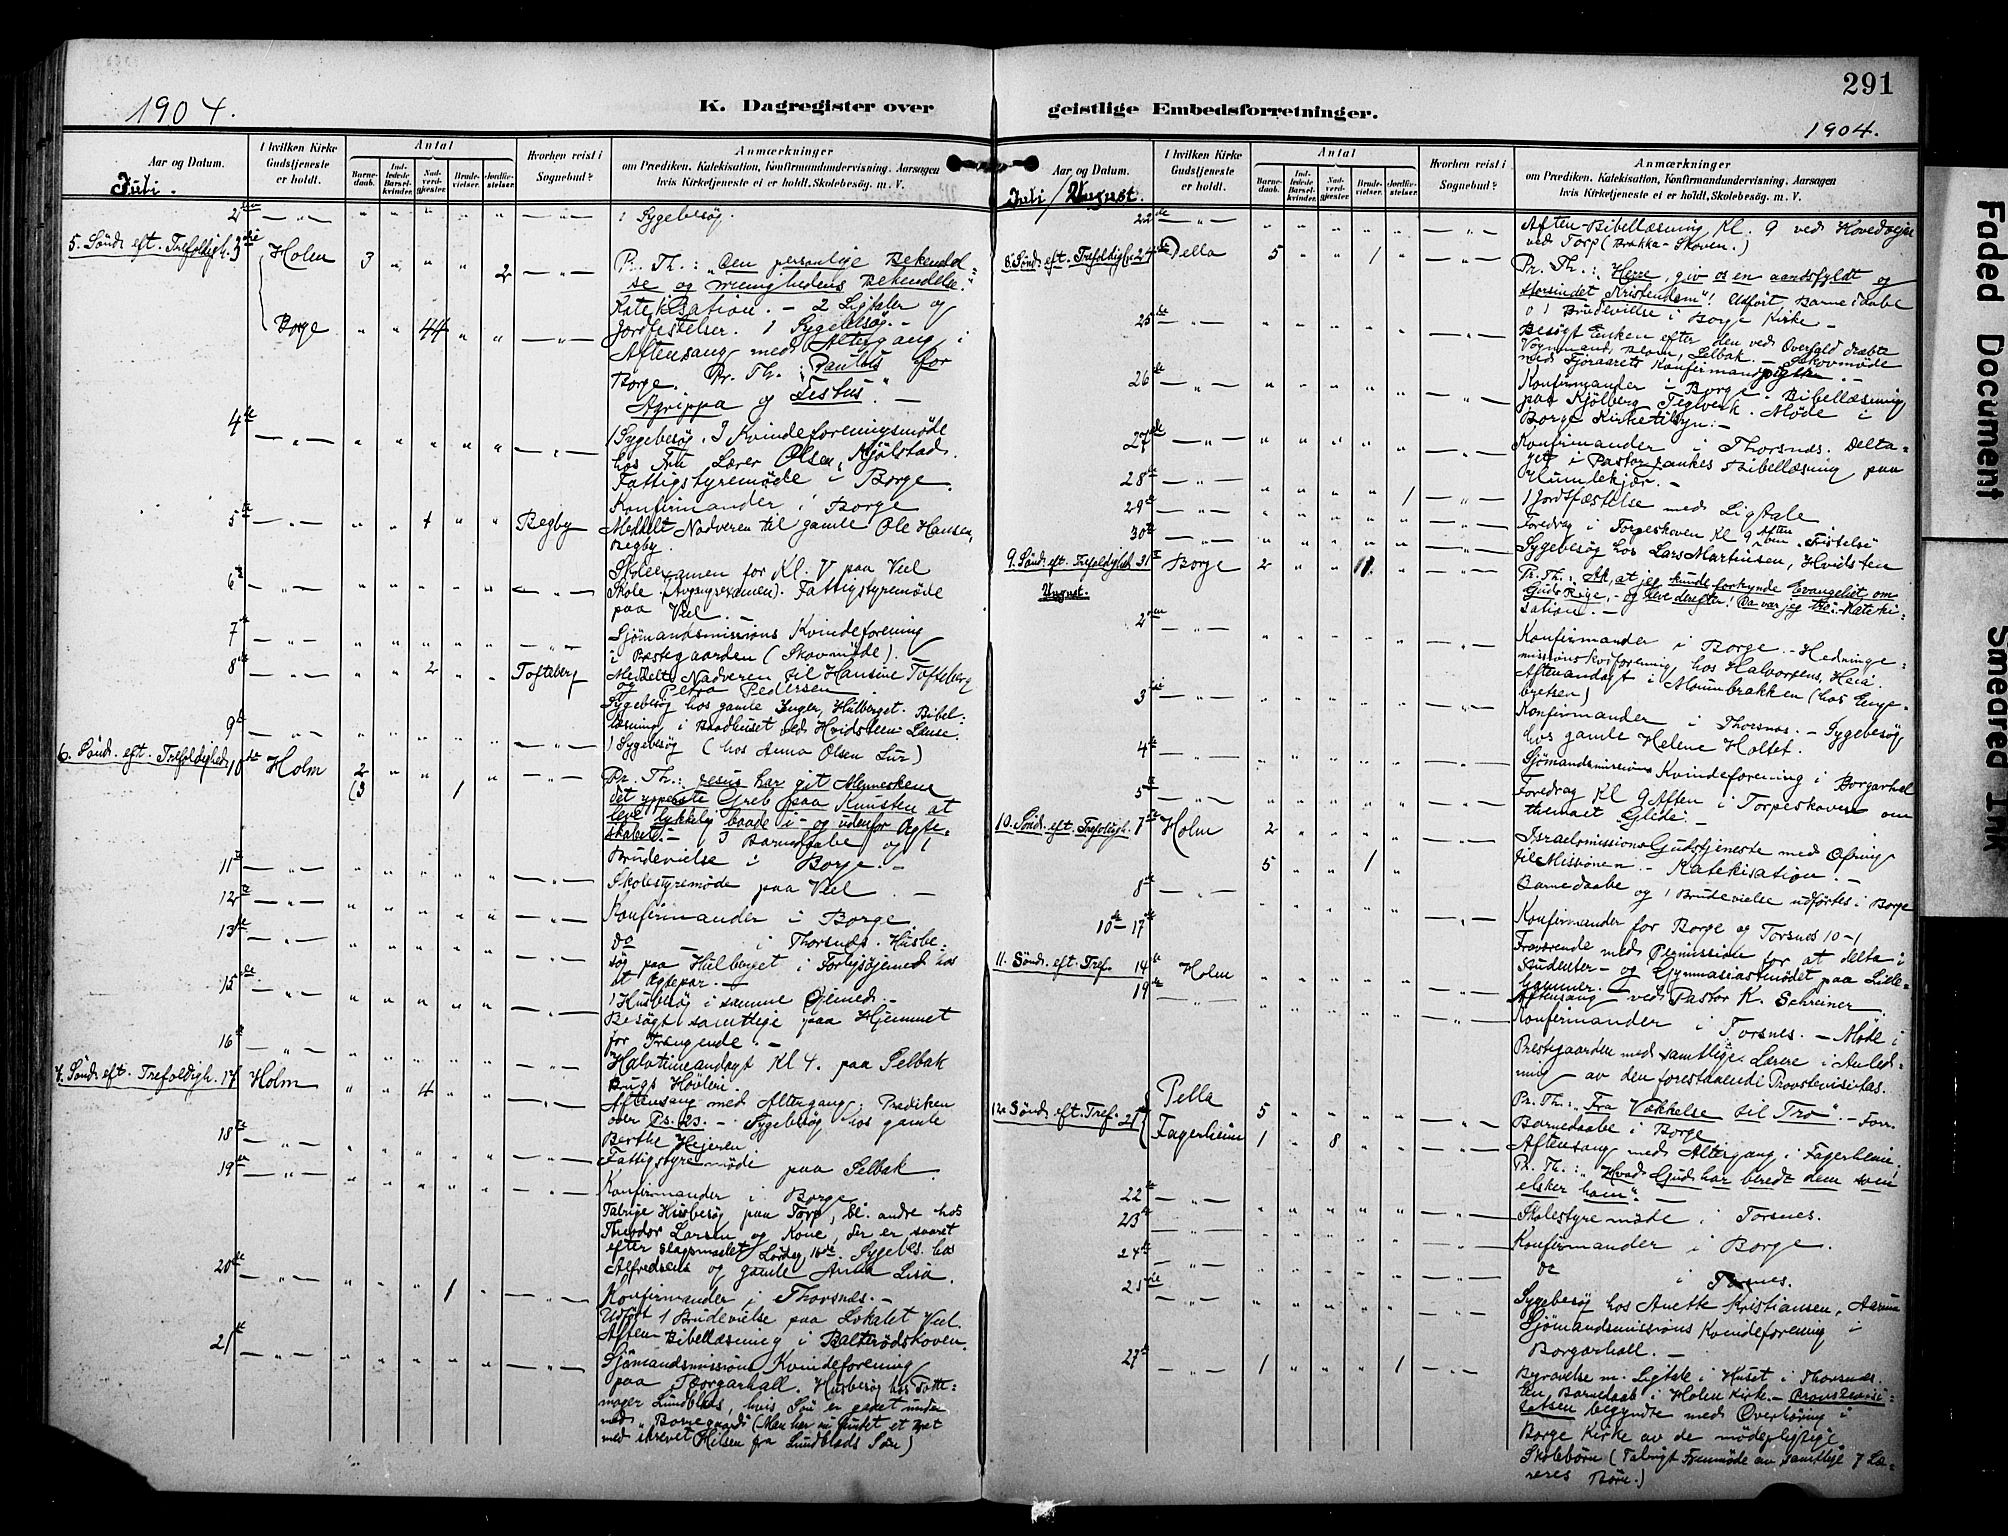 291
1904.
K. Dagregister over geistlige Embedsforretninger.
1904.
Aar og Datum.
I hvilken Kirke Gudstjeneste er holdt.
Antal
Barnedaab.
Indledede Barselkvinder.
Nadverdgjester.
Brudevielser.
Jordfæstelser.
Hvorhen reist i Sognebud?
Anmærkninger
om Prædiken, Katekisation, Konfirmandundervisning, Aarsagen
hvis Kirketjeneste ei er holdt, Skolebesøg. m. V.
Juli.
2den — „ — „ „ „ „ „ — „ — 1 Sygebesøg.
5. Sønd. eft. Trefoldigh. 3die Holm 3 „ „ „ 2 — „ — Pr. Th.: „Den personlige Bekendel-
se og menighedens Bekendelse."
Katekisation. – 2 Ligtaler og
Borge „ „ 44 „ „ — „ — Jordfæstelser. 1 Sygebesøg. –
Aftensang med Altergang i
Borge. Pr. Th.: „Paulus for
Agrippa og Festus". –
4de — „ — „ „ „ „ „ — „ — 1 Sygebesøg. I Kvindeforeningsmøde
hos Fru Lærer Olsen, Kjølstad.
Fattigstyremøde i Borge.
Konfirmander i Borge
5te — „ — „ „ 1 „ „ Begby Meddelt Nadveren til gamle Ole Hansen,
Begby.
Skoleexamen for Kl. V paa Viel
6te — „ — „ „ „ „ „ — „ — Skole (Avgangsexamen). Fattigstyremøde
paa Viel. –
7de — „ — „ „ „ „ „ — „ — Sjømandsmissions Kvindeforening
i Præstegaarden (Skovmøde).
8de — „ — „ „ 2 „ „ Tofteberg Meddelt Nadveren til Hansine Tofteberg
og Petra Pedersen
Sygebesøg hos gamle Inger, Hulberget. Bibel-
læsning i Baadhuset ved Hvidsteen
9de — „ — 1 Sygebesøg (hos Anna Olsen Lur)
6. Sønd. eft. Trefoldighed 10de Holm 2 „ „ „ „ — „ — Pr. Th.: Jesus har git Menneskene
(3 1 det ypperste Greb paa Kunsten at
leve lykkelig baade i – og udenfor Ægte-
skabet. – 3 Barnedaabe og 1
Brudevielse i Borge. –
11te — „ — „ „ „ „ „ — „ — Skolestyremøde paa Viel. –
12te — „ — „ „ „ „ „ — „ — Konfirmander i Borge
13de — „ — „ „ „ „ „ — „ — do — i Thorsnæs. Husbe-
søg paa Hulberget i hos
et Ægtepar. –
15de — „ — „ „ „ „ „ — „ — 1 Husbesøg i samme Øiemed. –
Besøgt samtlige paa Hjemmet
for Trængende. –
16de — „ — „ „ „ „ „ — „ — Halvtimeandagt Kl 4. paa Selbak
Brugs Høvleri.
7. Sønd. eft. Trefoldigh. 17de Holm „ „ 4 „ „ — „ — Aftensang med Altergang. Prædiken
over Ps. 23. – Sygebesøg hos gamle
Berthe Hejeren.
18de — „ — „ „ „ „ „ — „ — Fattigstyremøde paa Selbak.
19de — „ — „ „ „ „ „ — „ — Konfirmander i Borge
Talrige Husbesøg paa Torp, bl. andre hos
Theodor Larsen og Kone, der er saaret
efter slagsmaalet Lørdag 16de. Sygebes. hos
Alfredsens og gamle Anna Lisa.
20de — „ — „ „ „ 1 „ — „ — Konfirmander i Thorsnæs. –
Udført 1 Brudevielse paa Lokalet Viel.
Aften Bibellæsning i Balterødskoven.
21de — „ — „ „ „ „ „ — „ — Sjømandsmissions Kvindeforening
paa Borgarhall. Husbesøg hos Potte-
mager Lundblads, hvis Søn er gaaet under
med „Borregaard" (Man har nu fundet et Bræt
med skrevet Hilsen fra Lundblads Søn)
Aar og Datum.
I hvilken Kirke Gudstjeneste er holdt.
Antal
Barnedaab.
Indledede Barselkvinder.
Nadverdgjester.
Brudevielser.
Jordfæstelser.
Hvorhen reist i Sognebud?
Anmærkninger
om Prædiken, Katekisation, Konfirmandundervisning, Aarsagen
hvis Kirketjeneste ei er holdt, Skolebesøg. m. V.
Juli / August.
22de — „ — „ „ „ „ „ — „ — Aften-Bibellæsning Kl. 9 ved Hovedveien
ved Torp (Brakka-Skoven.)
8. Sønd. eft. Trefoldigh. 24de Pella 5 „ „ 1 „ — „ — Pr. Th.: „Herre, giv os en aandsfyldt og
Kristendom"! Udført Barnedaabe
o 1 Brudevielse i Borge Kirke –
25de — „ — „ „ „ „ „ — „ — Besøgt Enken efter den ved Overfald dræbte
Vognmand, Selbak. – Skovmøde
med Fjoraarets Konfirmander. –
26de — „ — „ „ „ „ „ — „ — Konfirmander i Borge – Bibellæsning
paa Kjølberg Teglverk. Møde i
Borge Kirketilsyn. –
27de — „ — „ „ „ „ „ — „ — Konfirmander i Thorsnes. Delta-
get i Pastor Bibellæsning paa
Humlekjær. –
28de — „ — „ „ „ „ 1 — „ — 1 Jordfæstelse med Ligtale
29de — „ — „ „ „ „ „ — „ — Foredrag i Torpeskoven Kl 9 Aften om „Fristelse"
30te — „ — „ „ „ „ „ — „ — Sygebesøg hos Lars Martinsen, Hvidsten
9. Sønd. eft. Trefoldighed 31te Borge 2 „ „ 11. „ — „ — Pr. Th.: Ak, at jeg kunde forkynde Evangeliet om
Guds Rige, – og leve derefter! Da var jeg tro. – Kateki-
sation. –
August.
2den — „ — „ „ „ „ „ — „ — Konfirmander i Borge. – Hedninge-
missionskvforening hos Halvorsens, Heia.
Aftenandagt i Moumbrakken (hos Enge-
bretsen)
3die — „ — „ „ „ „ „ — „ — Konfirmander i Thorsnæs. – Sygebesøg
hos gamle Helene Holtet.
4de — „ — „ „ „ „ „ — „ — Sjømandsmissions Kvindeforening i Borgarhal
5te — „ — „ „ „ „ „ — „ — Foredrag Kl 9 Aften i Torpeskoven om
themaet: Glæde. –
10. Sønd. eft. Trefoldigh. 7de Holm 2 „ „ „ „ — „ — Israelsmissions Gudstjeneste med Ofring
5 „ „ 1 „ til Missionen – Katekisation. –
Barnedaabe og 1 Brudevielse udførtes i Borge
8de — „ — „ „ „ „ „ — „ — Konfirmander for Borge og Torsnes 10–1
10de – 17de Fraværende med Permission for at delta i
Studenter- og Gymnasiastmødet paa Lille-
hammer. –
11. Sønd. eft. Tref. 14de Holm Aftensang ved Pastor K. Schreiner.
19de — „ — „ „ „ „ „ — „ — Konfirmander i Torsnes. – Møde i
Prestegaarden med samtlige Lærere i Anled-
ning av den forestaaende Provstevisitas.
12te Sønd. eft. Tref. 21de Pella 5 „ „ „ „ — „ — Pr. Th.: „Fra Vækkelse til Tro". – Forr.
Barnedaabe i Borge
Fagerheim 1 „ 8 „ „ — „ — Aftensang med Altergang i Fagerheim.
Pr. Th.: „Hvad Gud har beredt dem som
elsker ham". –
22de — „ — „ „ „ „ „ — „ — Skolestyremøde i Torsnes.
23de — „ — „ „ „ „ „ — „ — Konfirmander i Borge.
24de — „ — „ „ „ „ „ — „ — do i Torsnes.
25de — „ — „ „ „ „ „ — „ — Sygebesøg hos Anette Kristiansen,
Sjømandsmissions Kvindeforening i
Borgarhall. –
27de — „ — 1 „ „ „ 1 — „ — Begravelse m. Ligtale i Huset i Thorsnæs.
En Barnedaab i Holm Kirke. – Provstevisi-
tatsen begyndte med Overhøring i
Borge Kirke av de mødepligtige
Skolebørn (Talrigt Fremmøde av samtlige 7 Læ-
reres Børn.)
Faded Document
Smeared Ink